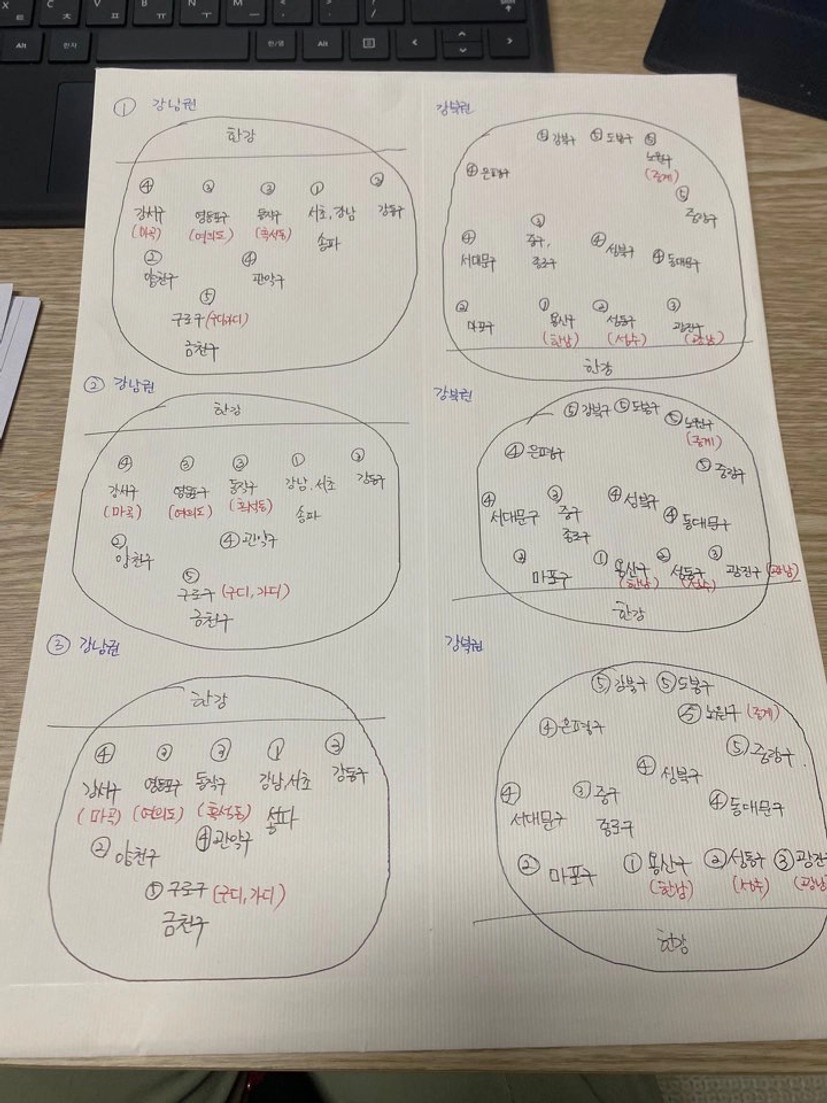 ① 강남권
한강
④ ③ ③ ① ②
강서구 영등포구 동작구 서초, 강남 강동구
(마곡) (여의도) (흑석동) 송파
② ④
양천구 관악구
⑤
구로구 (구디,가디)
금천구
강북권
⑤ 강북구 ⑤ 도봉구 ⑤
노원구
(중계)
④ 은평구
⑤
중랑구
④ ③ ④ 성북구 ④ 동대문구
서대문구 중구,
종로구
② ① ② ③
마포구 용산구 성동구 광진구
(한남) (성수) (광남)
한강
② 강남권
한강
④ ③ ③ ① ②
강서구 영등포구 동작구 강남, 서초 강동구
(마곡) (여의도) (흑석동) 송파
② ④ 관악구
양천구
⑤
구로구 (구디, 가디)
금천구
강북권
⑤ 강북구 ⑤ 도봉구 ⑤ 노원구
(중계)
④ 은평구
⑤ 중랑구
④ ③ ④ 성북구
서대문구 중구 ④ 동대문구
종로구
② ① ② ③
마포구 용산구 성동구 광진구 (광남)
(한남) (성수)
한강
③ 강남권
한강
④ ③ ① ②
강서구 영등포구 동작구 강남,서초 강동구
(마곡) (여의도) (흑석동) 송파
② 양천구 ④ 관악구
⑤ 구로구 (구디, 가디)
금천구
강북권
⑤ 강북구 ⑤ 도봉구
⑤ 노원구 (중계)
④ 은평구
⑤ 중랑구
④ 성북구
④ ③ 중구 ④ 동대문구
서대문구 종로구
② 마포구 ① 용산구 ② 성동구 ③
(한남) (성수)
한강